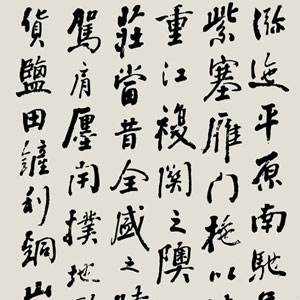 濔迆平原南馳
紫塞雁門柂以
重江複關之隩
莊當昔全盛之時
駕肩廛閈撲地
貨鹽田鏟利銅山